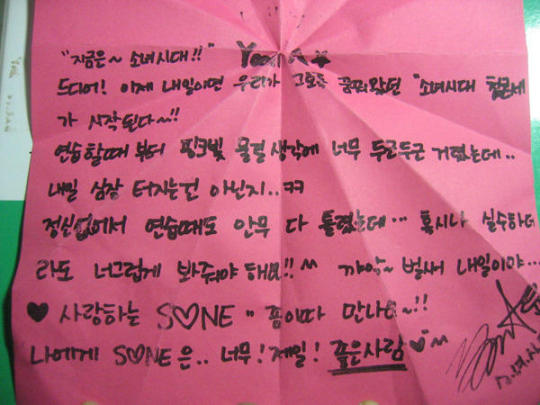 "지금은~ 소녀시대!!" YoonA★
드디어! 이제 내일이면 우리가 그토록 꿈꿔왔던 "소녀시대 첫콘"에
가 시작된다~!!
연습할때 부터 핑크빛 물결 생각에 너무 두근두근 거렸는데..
내일 심장 터지는건 아닌지..ㅋㅋ
정신없어서 연습때도 안무 다 틀렸는데... 혹시나 실수하더
라도 너그럽게 봐줘야 해요!! ^^ 꺄악~ 벌써 내일이야...
♥ 사랑하는 S♡NE " 좀이따 만나요~!!
나에게 S♡NE은.. 너무! 제일! 좋은사람♥~